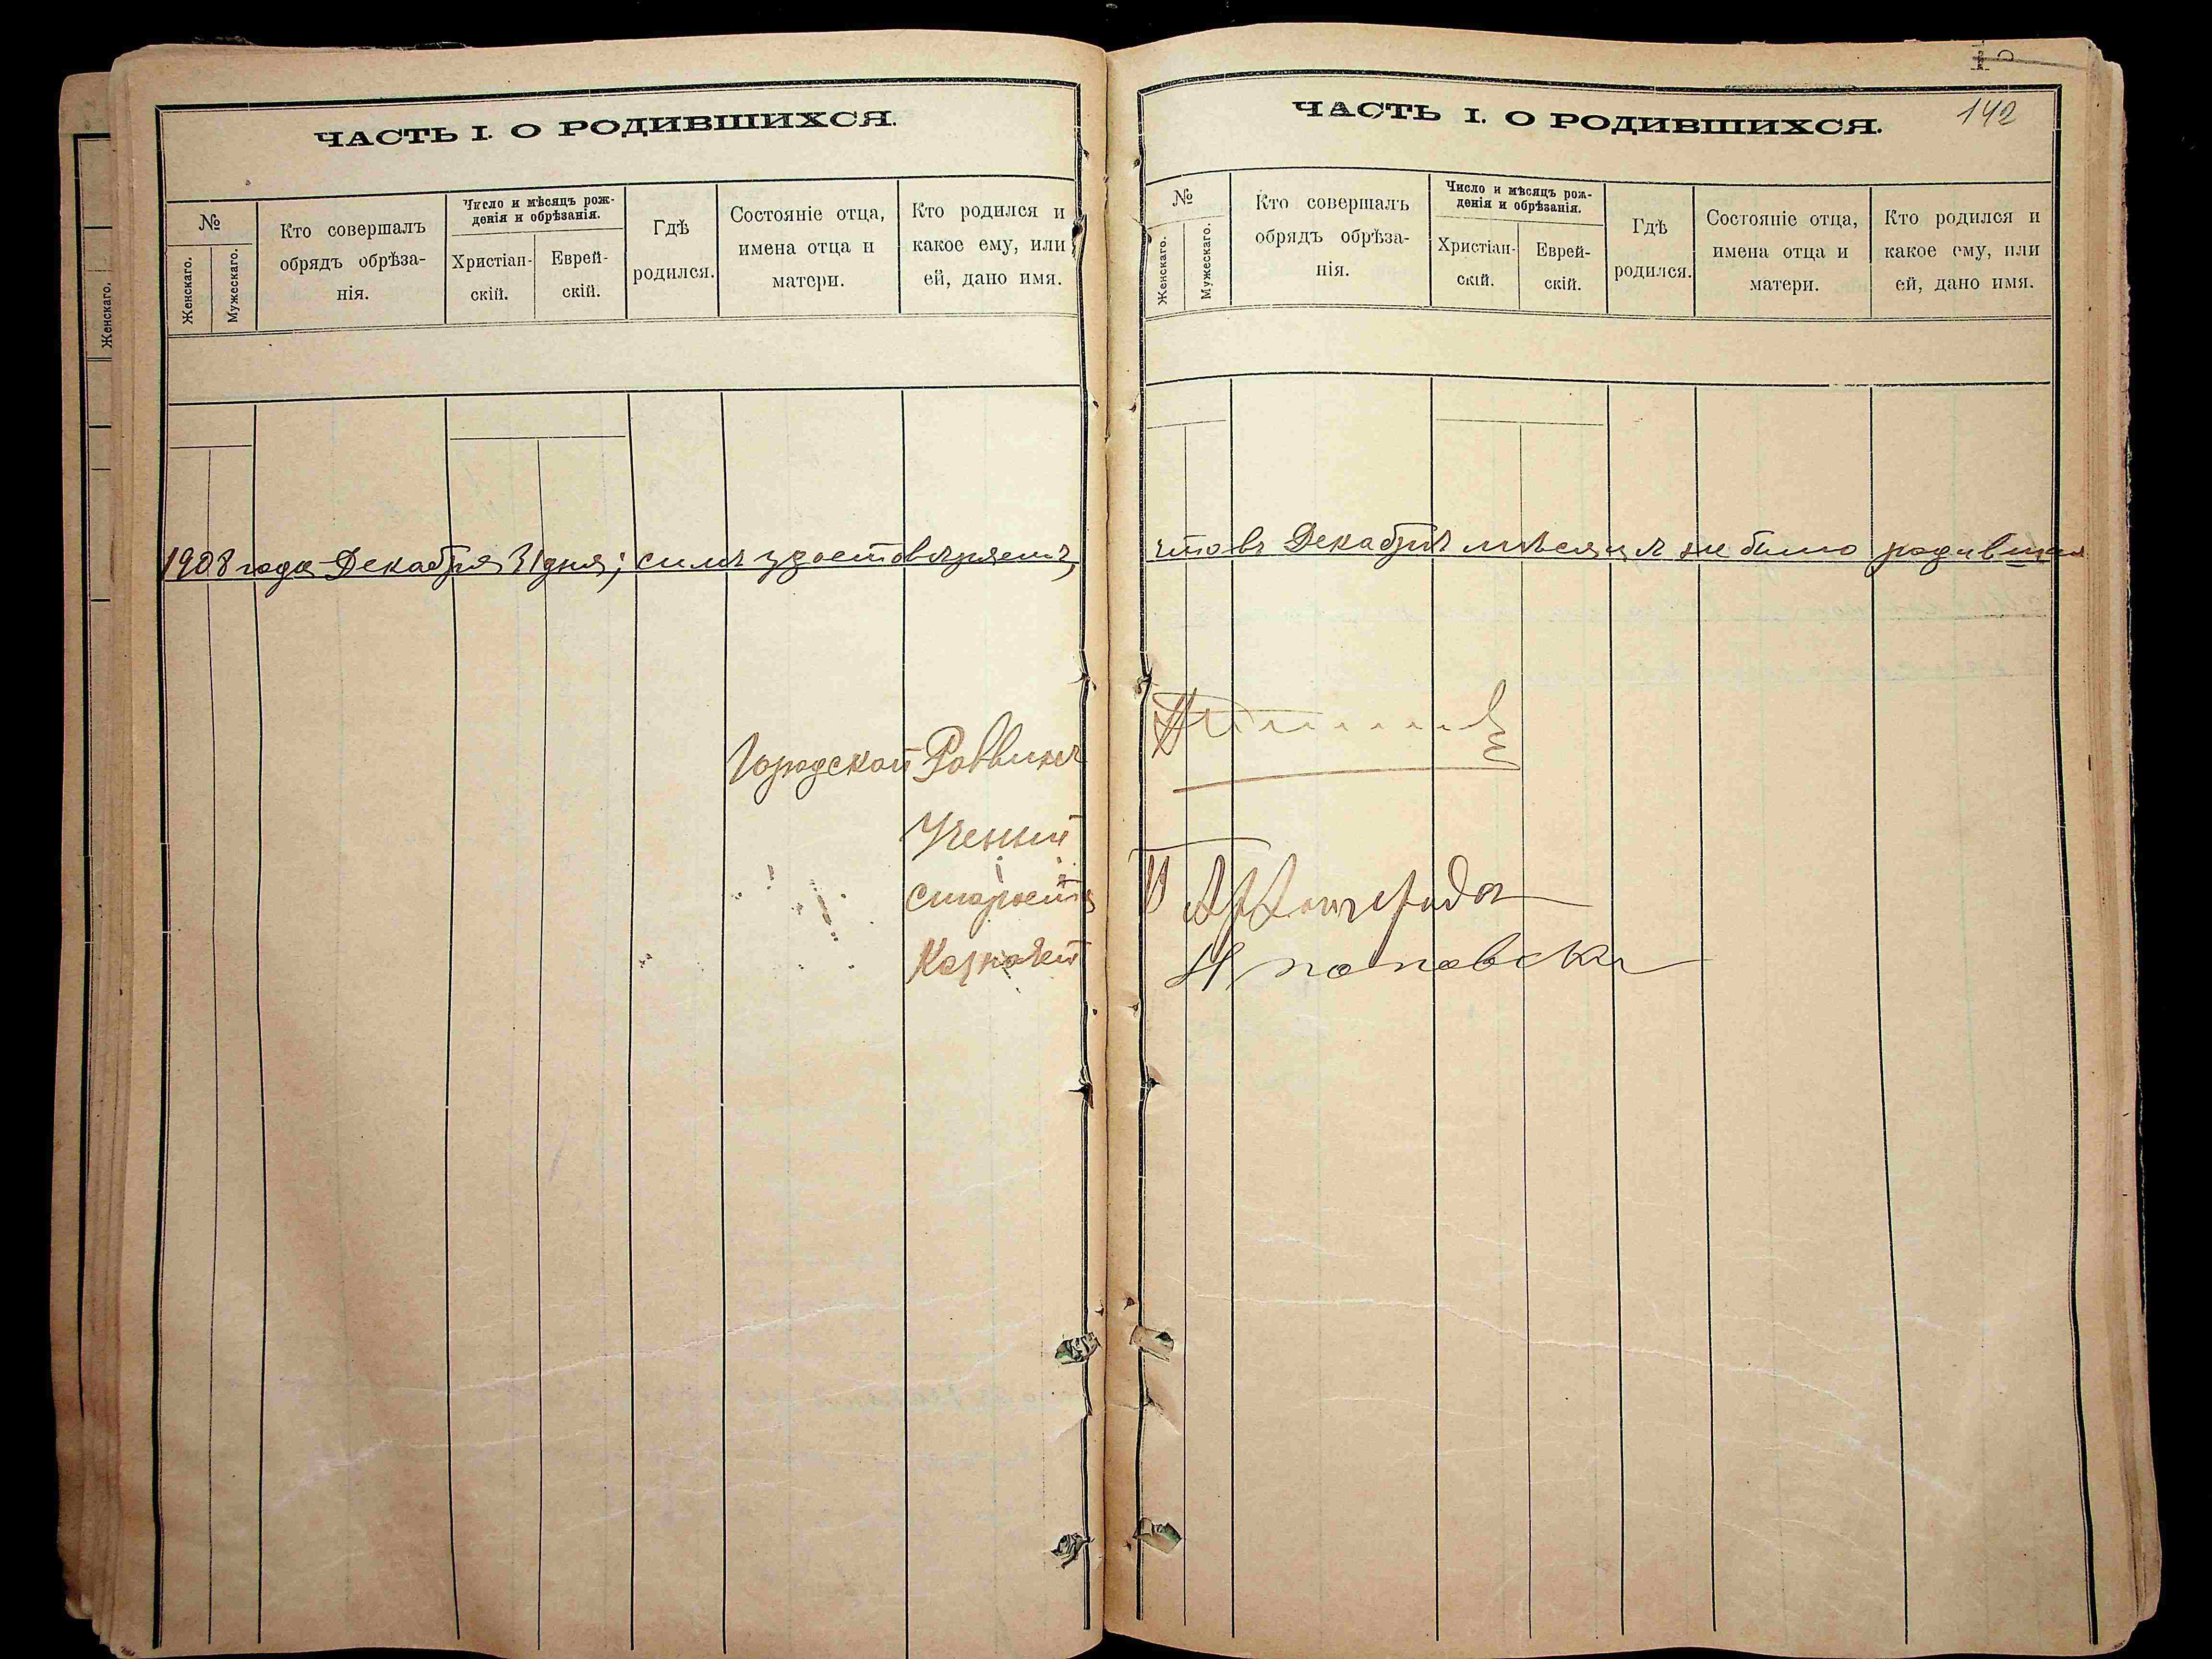 ЧАСТЬ I. О РОДИВШИХСЯ.
№
Женскаго.
Мужескаго.
Кто совершалъ
обрядъ обрѣза-
нія.
Число и мѣсяцъ рож-
денія и обрѣзанія.
Христіан-
скій.
Еврей-
скій.
Гдѣ
родился.
Состояніе отца,
имена отца и
матери.
Кто родился и
какое ему, или
ей, дано имя.
1908 года Декабря 31 дня; симъ удостовѣряемъ,
Городской Раввинъ
Ученый
Староста
Казначей
Женскаго.
142
ЧАСТЬ I. О РОДИВШИХСЯ.
№
Женскаго.
Мужескаго.
Кто совершалъ
обрядъ обрѣза-
нія.
Число и мѣсяцъ рож-
денія и обрѣзанія.
Христіан-
скій.
Еврей-
скій.
Гдѣ
родился.
Состояніе отца,
имена отца и
матери.
Кто родился и
какое ему, или
ей, дано имя.
что въ Декабрѣ мѣсяцѣ не было родившихся